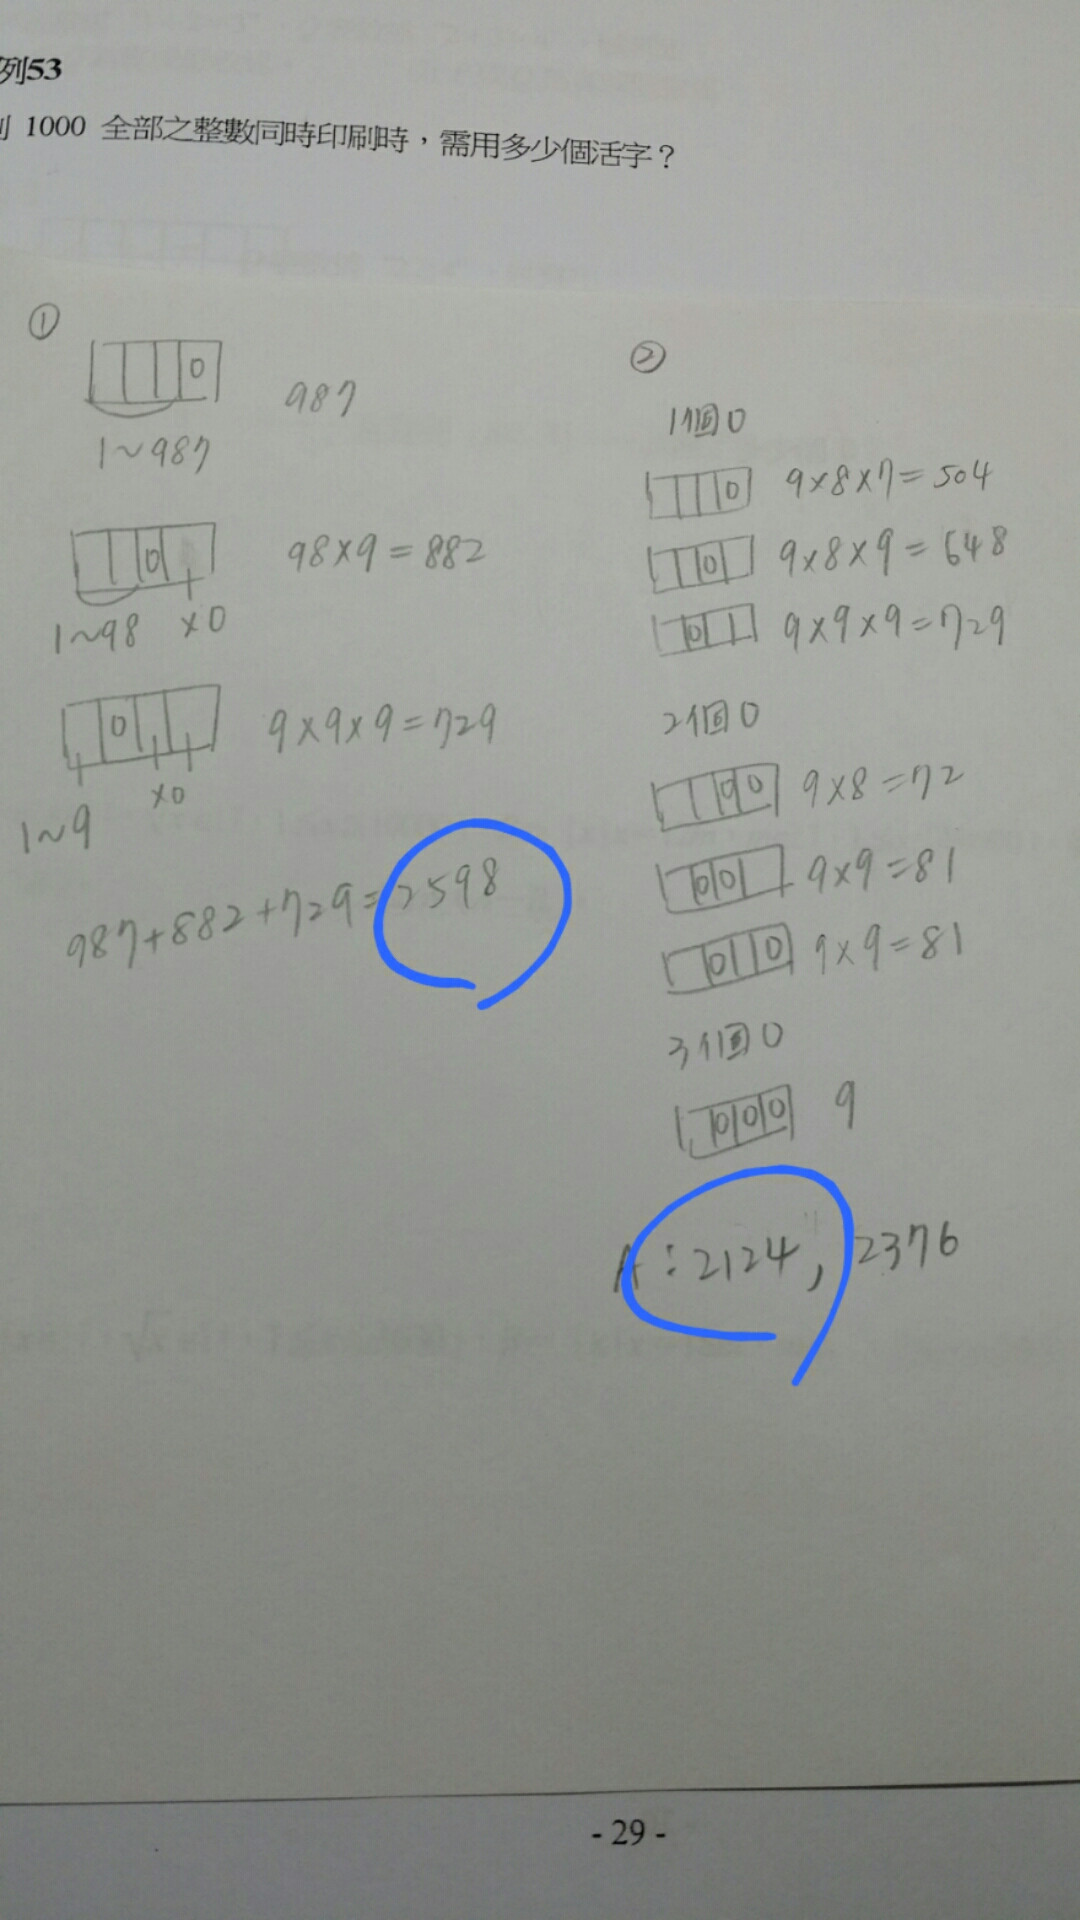 例53
1000 全部之整數同時印刷時，需用多少個活字？
①
0
987
1~987
0
98×9=882
1~98 ×0
0
9×9×9=729
×0
1~9
987+882+729=2598
②
1個0
0 9×8×7=504
0 9×8×9=648
0 9×9×9=729
2個0
00 9×8=72
00 9×9=81
0 0 9×9=81
3個0
000 9
A:2124, 2376
- 29 -